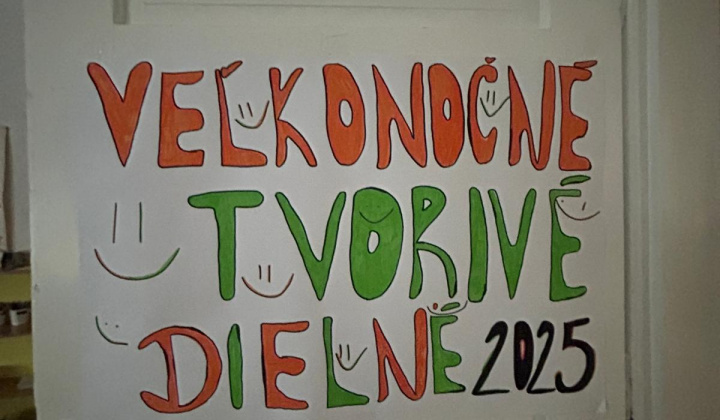 VEĽKONOČNÉ
TVORIVÉ
DIELNĚ 2025